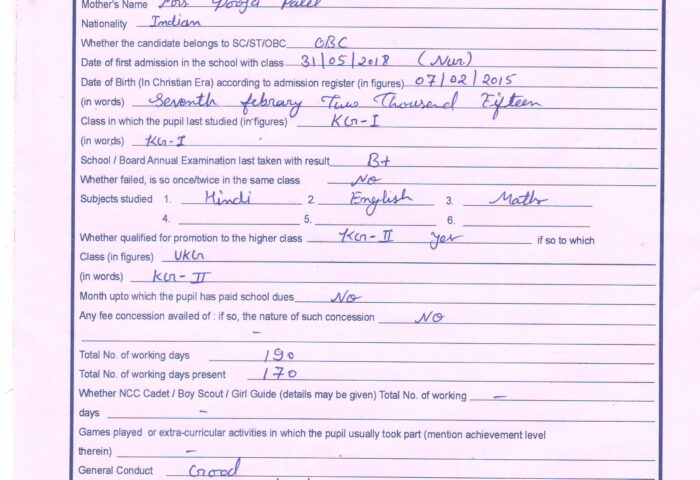 Mother's Name Mrs Pooja Patel
Nationality Indian
Whether the candidate belongs to SC/ST/OBC OBC
Date of first admission in the school with class 31/05/2018 (Nur)
Date of Birth (In Christian Era) according to admission register (in figures) 07/02/2015
(in words) Seventh febrary Two Thousend Fifteen
Class in which the pupil last studied (in figures) KG-I
(in words) KG-I
School / Board Annual Examination last taken with result B+
Whether failed, is so once/twice in the same class NO
Subjects studied 1. Hindi 2. English 3. Maths
4. 5. 6.
Whether qualified for promotion to the higher class KG-II yes if so to which
Class (in figures) UKG
(in words) KG-II
Month upto which the pupil has paid school dues NO
Any fee concession availed of : if so, the nature of such concession NO
–
Total No. of working days 190
Total No. of working days present 170
Whether NCC Cadet / Boy Scout / Girl Guide (details may be given) Total No. of working –
days –
Games played or extra-curricular activities in which the pupil usually took part (mention achievement level
therein) –
General Conduct Good